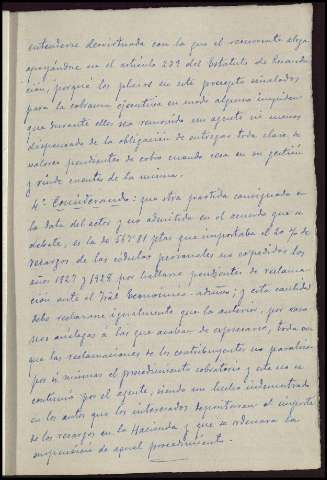 entenderse desvirtuada con lo que el recurrente alega
apoyándose en el artículo 239 del Estatuto de Recauda-
ción, porque los plazos en este precepto señalados
para la cobranza ejecutiva en modo alguno impiden
que durante ellos sea removido un agente ni menos
dispensado de la obligación de entregar toda clase de
valores pendientes de cobro cuando cesa en su gestión
y rinde cuentas de la misma.
4º Considerando: que otra partida consignada en
la data del actor y no admitida en el acuerdo que se
debate, es la de 567'81 ptas que importaba el 20 % de
recargo de las cédulas personales no expedidas los
años 1927 y 1928 por hallarse pendientes de reclama-
ción ante el Tral Económico-admvo; y esta cantidad
debe rechazarse igualmente que la anterior, por razo-
nes análogas a las que acaban de expresarse, toda vez
que las reclamaciones de los contribuyentes no paralizan
por si mismas el procedimiento cobratorio y este no se
continuó por el agente, siendo un hecho indemostrado
en los autos que los interesados depositaran el importe
de los recargos en la Hacienda y que se ordenara la
suspensión de aquel procedimiento.